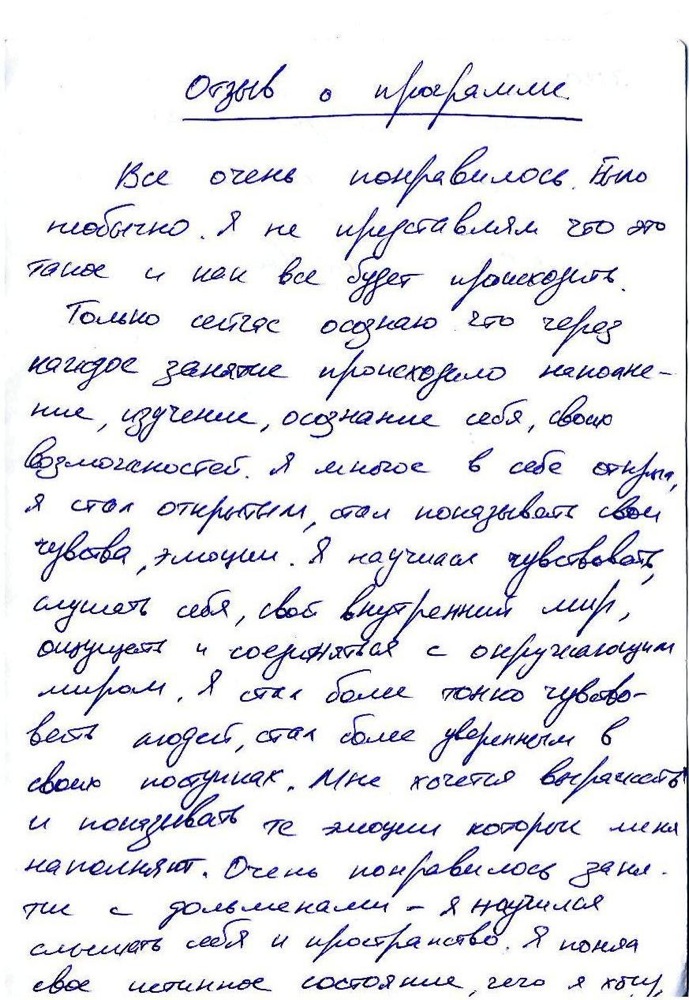 Отзыв о программе
Все очень понравилось. Было
необычно. Я не представлял что это
такое и как все будет происходить.
Только сейчас осознаю что через
каждое занятие происходило наполне-
ние, изучение, осознание себя, своих
возможностей. Я многое в себе открыл,
я стал открытым, стал показывать свои
чувства, эмоции. Я научился чувствовать,
слушать себя, свой внутренний мир,
ощущать и соединяться с окружающим
миром. Я стал более тонко чувство-
вать людей, стал более уверенным в
своих поступках. Мне хочется выражать
и показывать те эмоции которые меня
наполняют. Очень понравилось заня-
тие с дольменами – я научился
слышать себя и пространство. Я понял
свое истинное состояние, чего я хочу,